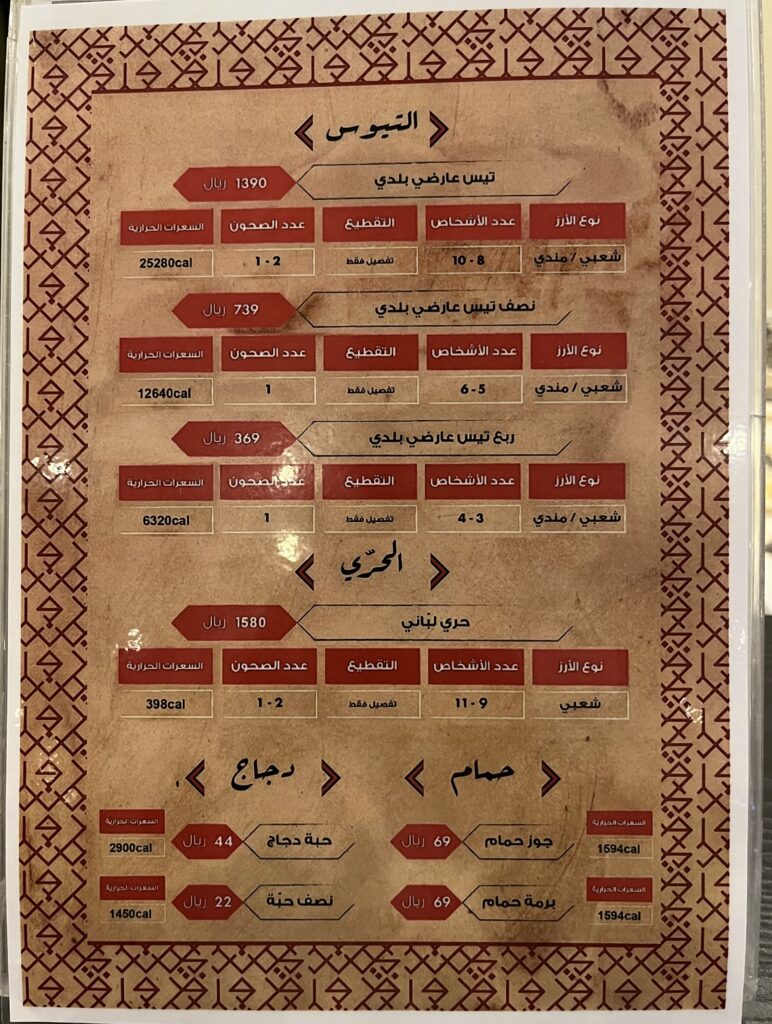 التيوس
تيس عارضي بلدي 1390 ريال
نوع الأرز عدد الأشخاص التقطيع عدد الصحون السعرات الحرارية
شعبي / مندي 8 - 10 تفصيل فقط 2 - 1 25280cal
نصف تيس عارضي بلدي 739 ريال
نوع الأرز عدد الأشخاص التقطيع عدد الصحون السعرات الحرارية
شعبي / مندي 5 - 6 تفصيل فقط 1 12640cal
ربع تيس عارضي بلدي 369 ريال
نوع الأرز عدد الأشخاص التقطيع عدد الصحون السعرات الحرارية
شعبي / مندي 3 - 4 تفصيل فقط 1 6320cal
الحرّي
حري لبّاني 1580 ريال
نوع الأرز عدد الأشخاص التقطيع عدد الصحون السعرات الحرارية
شعبي 9 - 11 تفصيل فقط 2 - 1 398cal
حمام
السعرات الحرارية
جوز حمام 69 ريال
1594cal
السعرات الحرارية
برمة حمام 69 ريال
1594cal
دجاج
حبة دجاج 44 ريال
السعرات الحرارية
2900cal
نصف حبّة 22 ريال
السعرات الحرارية
1450cal